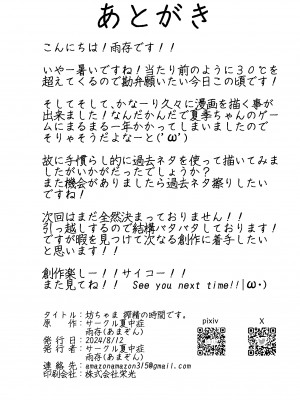 あとがき
こんにちは！雨存です！！
いやー暑いですね！当たり前のように３０℃を
超えてくるので勘弁願いたい今日この頃です！
そしてそして、かなーり久々に漫画を描く事が
出来ました！なんだかんだで夏季ちゃんのゲー
ムにまるまる一年かかってしまいましたので
そりゃそうだよなーと(’ω’)
故に手慣らし的に過去ネタを使って描いてみま
したがいかがだったでしょうか？
また機会がありましたら過去ネタ擦りしたい
ですね！
次回はまだ全然決まっておりません！！
引っ越しするので結構バタバタしております！
ですが暇を見つけて次なる創作に着手したい
と思います！
創作楽しー！！サイコー！！
また見てね！！ See you next time!!|ω・)
タイトル：坊ちゃま 搾精の時間です。
原　作：サークル夏中症
雨存(あまぞん)
発行日：2024/8/12
発行者：サークル夏中症
雨存(あまぞん)
連絡先：amazonamazon315@gmail.com
印刷会社：株式会社栄光
pixiv
X